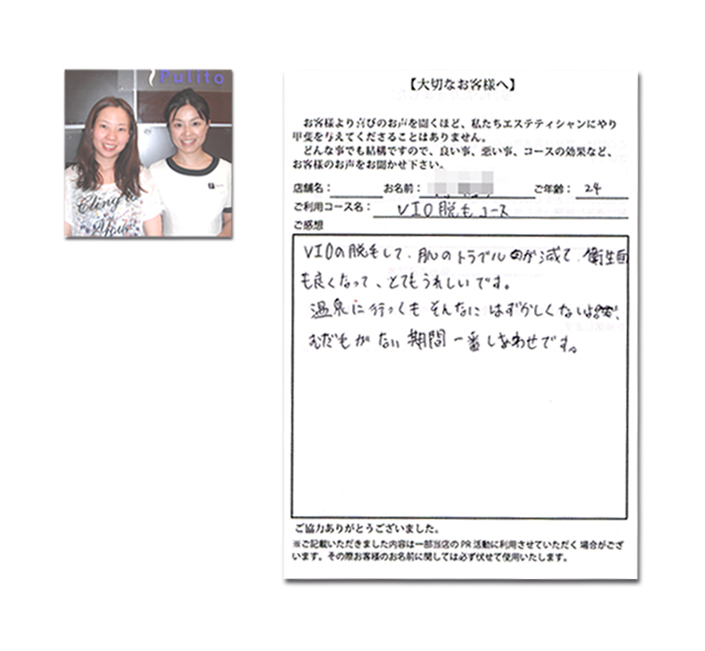 Pulito
Cling to
You
【大切なお客様へ】
お客様より喜びのお声を聞くほど、私たちエステティシャンにやり
甲斐を与えてくださることはありません。
どんな事でも結構ですので、良い事、悪い事、コースの効果など、
お客様のお声をお聞かせ下さい。
店舗名： お名前： ご年齢： 24
ご利用コース名： VIO脱毛コース
ご感想
VIOの脱毛して、肌のトラブルが減て、衛生面
も良くなって、とてもうれしいです。
温泉に行ってもそんなにはずかしくない
むだもがない期間一番しあわせです。
ご協力ありがとうございました。
※ご記載いただきました内容は一部当店のPR活動に利用させていただく場合がござ
います。その際お客様のお名前に関しては必ず伏せて使用いたします。